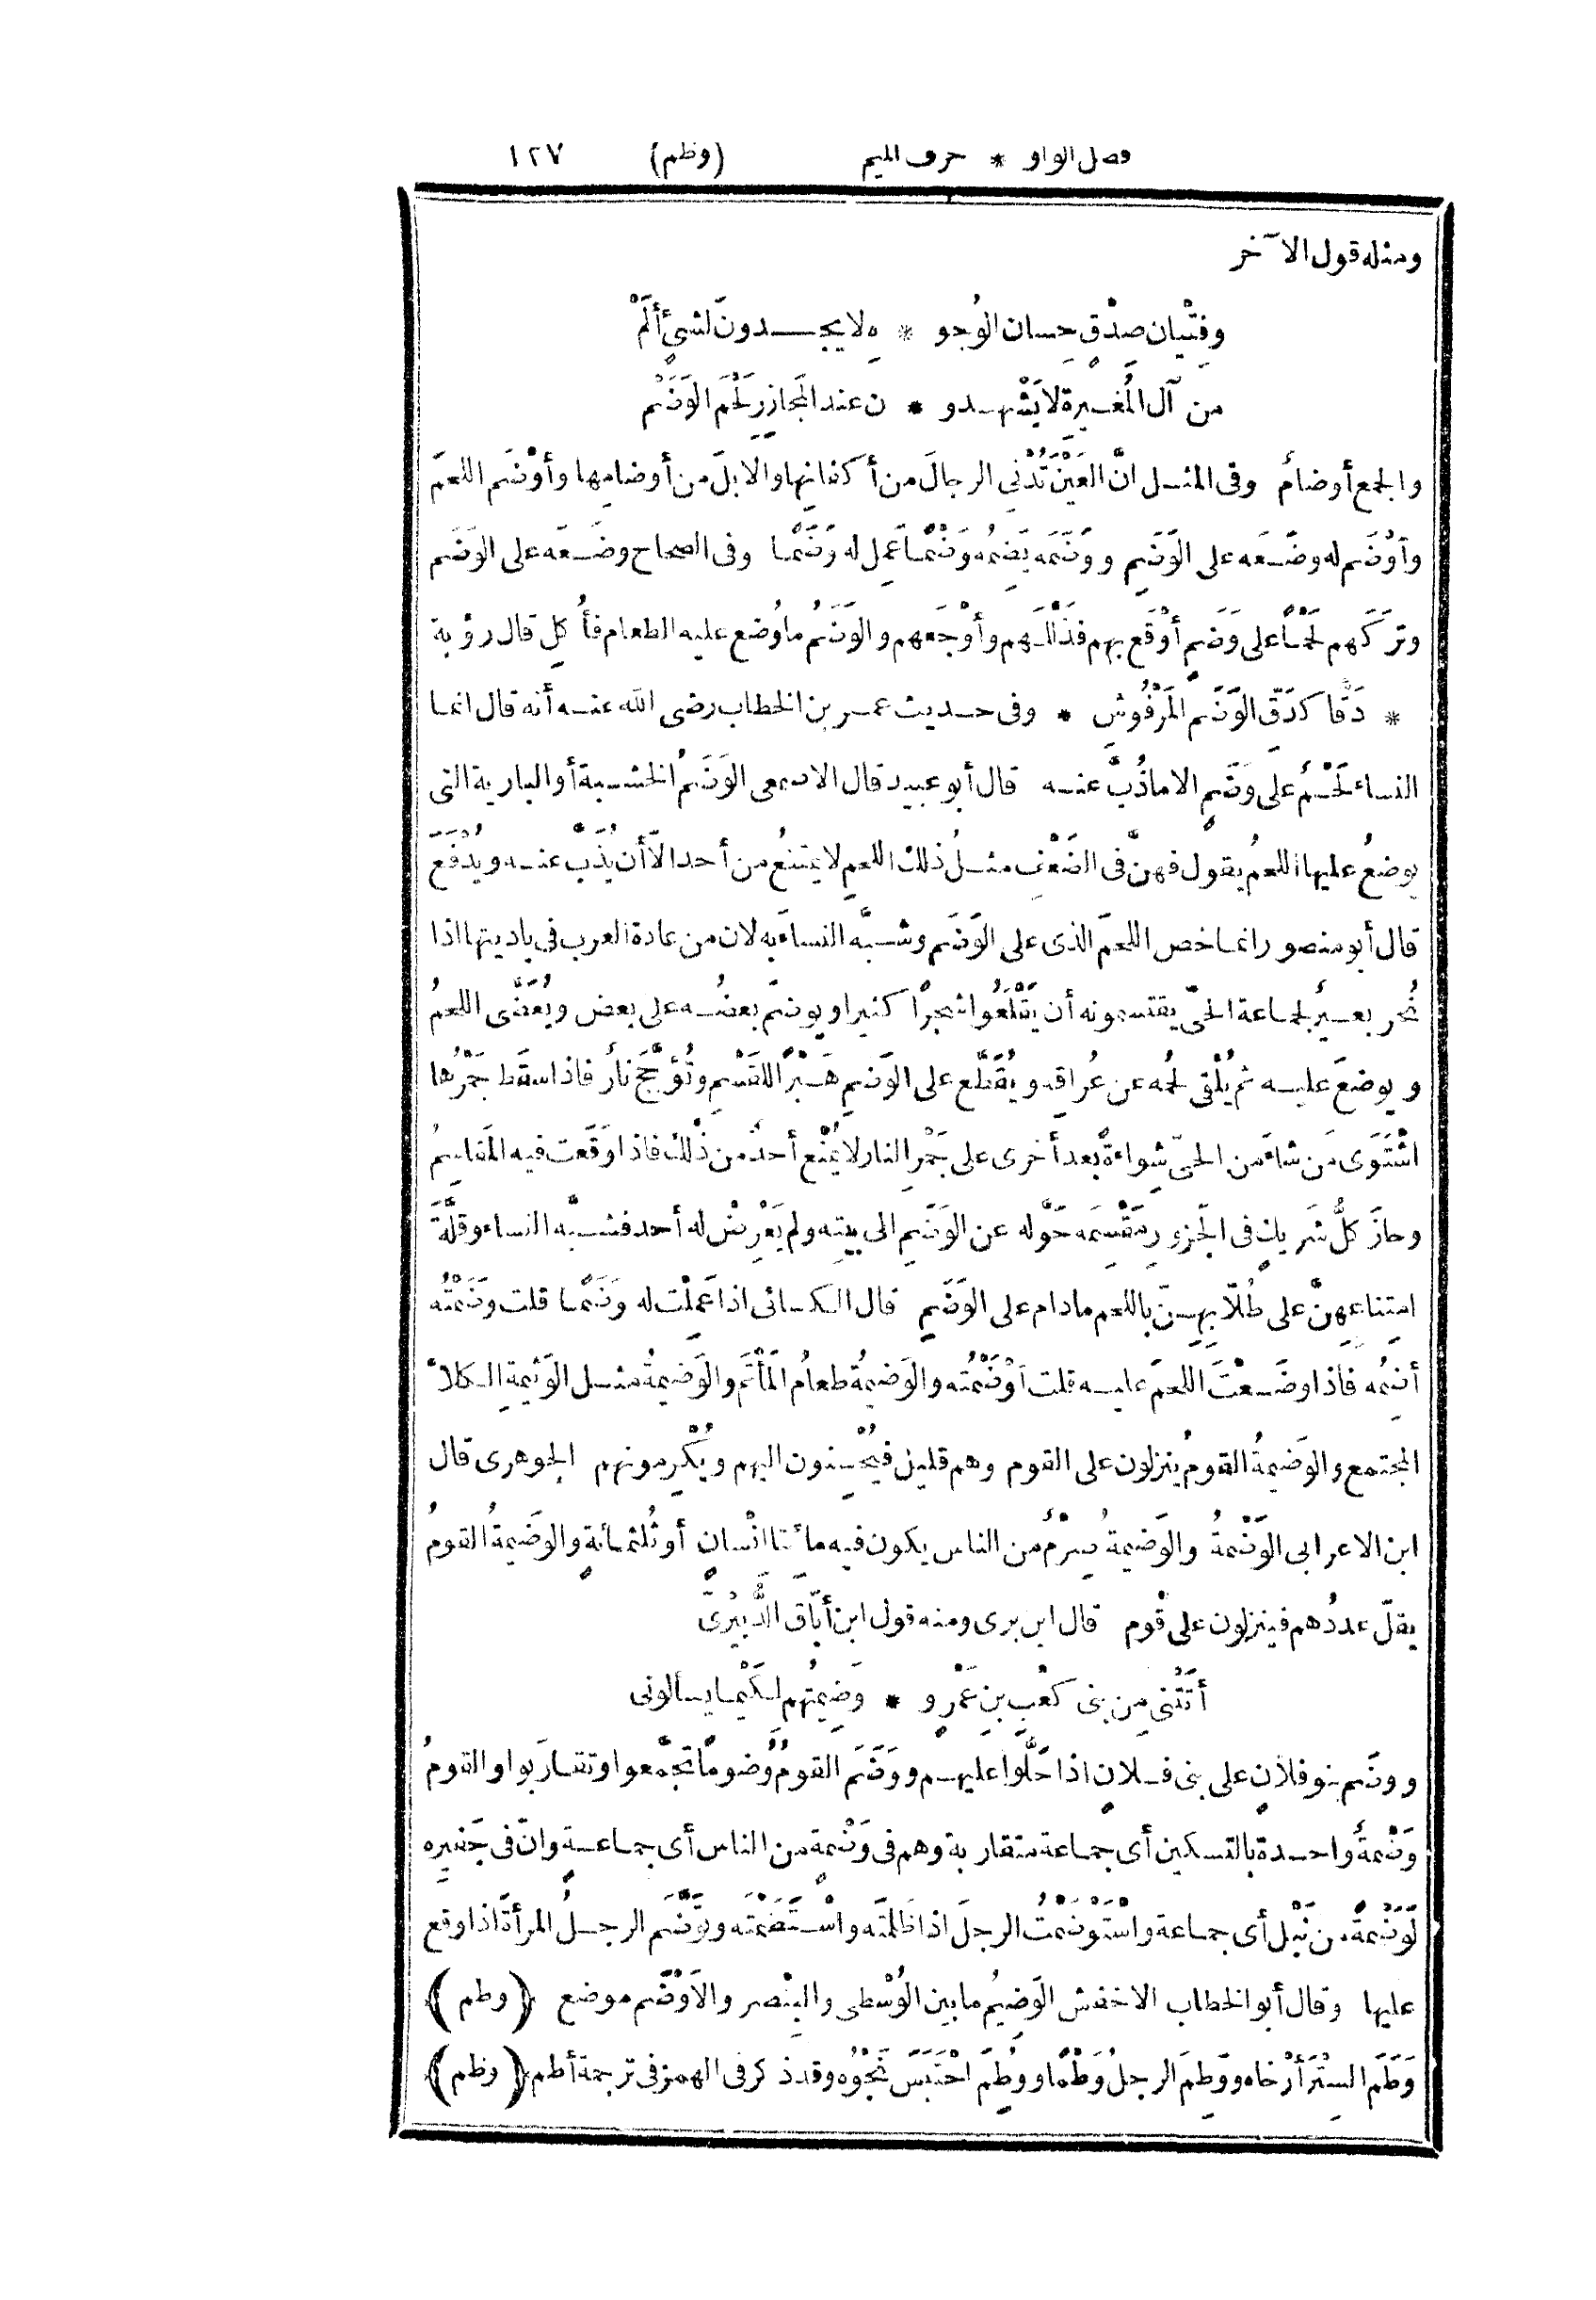 فصل الواو * حرف الميم (وظم) ١٢٧
ومثله قول الآخر
وفِتْيان صِدْقٍ حِسان الوُجو * هِ لا يجدونَ لشئٍ أَلَمْ
من آل المُغيرةِ لا يَشْهدو * ن عند المَجازِرِ لَحْمَ الوَضَمْ
والجمع أوضامٌ وفى المثل انّ العَيْنَ تُدْنِى الرجالَ من أكفانها والابلَ من أوضامِها وأوْضَم اللحمَ
وأوْضَم له وضَعَه على الوَضَمِ ووَضَمَه يَضِمُه وَضْمًا عَمِل له وَضَمًا وفى الصحاح وضَعَه على الوَضَم
وتركَهم لَحْمًا على وَضَمٍ أوْقَع بهم فذَلَّلَهم وأوْجَعَهم والوَضَمُ ما وُضع عليه الطعام فأُكِل قال رؤبة
* دَقًّا كدَقِّ الوَضَمِ المَرْفُوشِ * وفى حديث عمر بن الخطاب رضى الله عنه أنه قال انما
النساء لَحْمٌ على وَضَمٍ الا ما ذُبَّ عنه قال أبو عبيد قال الاصمعى الوَضَمُ الخشبة أو البارية التى
يوضعُ عليها اللحمُ يقول فهنّ فى الضَعْفِ مثلُ ذلك اللحمِ لا يمتنعُ من أحد الّا أن يُذَبَّ عنه ويُدْفَعَ
قال أبو منصور انما خص اللحمَ الذى على الوَضَمِ وشبَّه النساءَ به لان من عادة العرب فى باديتها اذا
نُحر بعيرٌ لجماعة الحىّ يقتسمونه أن يَقْلَعُوا شجرًا كثيرا ويوضَمَ بعضُه على بعض ويُعَضَّى اللحمُ
ويوضعَ عليه ثم يُلْقى لحمُه عن عُراقِه ويُقَطَّع على الوَضَمِ هَبْرًا للقَسْمِ وتُؤَجَّجَ نارٌ فاذا سقَط جَمْرُها
اشْتَوَى مَن شاءَ من الحىّ شِواءةً بعد أخرى على جَمْرِ النار لا يُمْنَع أحدٌ من ذلك فاذا وَقَعت فيه المَقاسِمُ
وحازَ كلُّ شَريكٍ فى الجَزورِ مَقْسِمَه حَوَّله عن الوَضَمِ الى بيته ولم يَعْرِضْ له أحد فشبَّه النساء وقلَّةَ
امتِناعِهِنّ على طُلّابِهِنّ باللحم ما دام على الوَضَمِ قال الكسائى اذا عَمِلْت له وَضَمًا قلت وَضَمْتُه
أضِمُه فاذا وضَعْتَ اللحمَ عليه قلت أوْضَمْتُه والوَضيمةُ طعامُ المَأْتَمِ والوَضِيمةُ مثل الوَثيمةِ الكلأ
المجتمع والوَضيمةُ القومُ ينزلون على القوم وهم قليل فيُحْسِنون اليهم ويُكْرِمونهم الجوهرى قال
ابن الاعرابى الوَضْمةُ والوَضيمةُ صِرْمٌ من الناس يكون فيه مائتا انْسانٍ أو ثُلثمائةٍ والوَضيمةُ القومُ
يقلّ عددُهم فينزلون على قَوم قال ابن برى ومنه قول ابن أبّاق الدُّبَيْرِىّ
أَتَتْنِى مِن بنى كَعْبِ بنِ عَمْرٍو * وَضِيمَتُهم لكَيْما يسألونى
ووضَم بنو فلانٍ على بنى فلانٍ اذا حَلُّوا عليهم ووَضَمَ القومُ وُضومًا تجَمَّعوا وتقارَبوا والقومُ
وَضْمةٌ واحدة بالتسكين أى جماعة متقاربة وهم فى وَضْمةٍ من الناس أى جماعةٍ وانّ فى جَفيرِه
لَوَضْمةً من نَبْل أى جماعة واسْتَوْضَمْتُ الرجلَ اذا ظَلمتَه واسْتَضَمْتَه وتَوَضَّم الرجلُ المرأةَ اذا وقع
عليها وقال أبو الخطاب الاخفش الوَضِيمُ ما بين الوُسْطى والبِنْصر والاَوْضَم موضع (وطم)
وَطَمَ السِتْرَ أرْخاه ووَطِمَ الرجلُ وَطْمًا ووُطِمَ احْتَبَسَ نَجْوُه وقد ذكر فى الهمز فى ترجمة أطم (وظم)